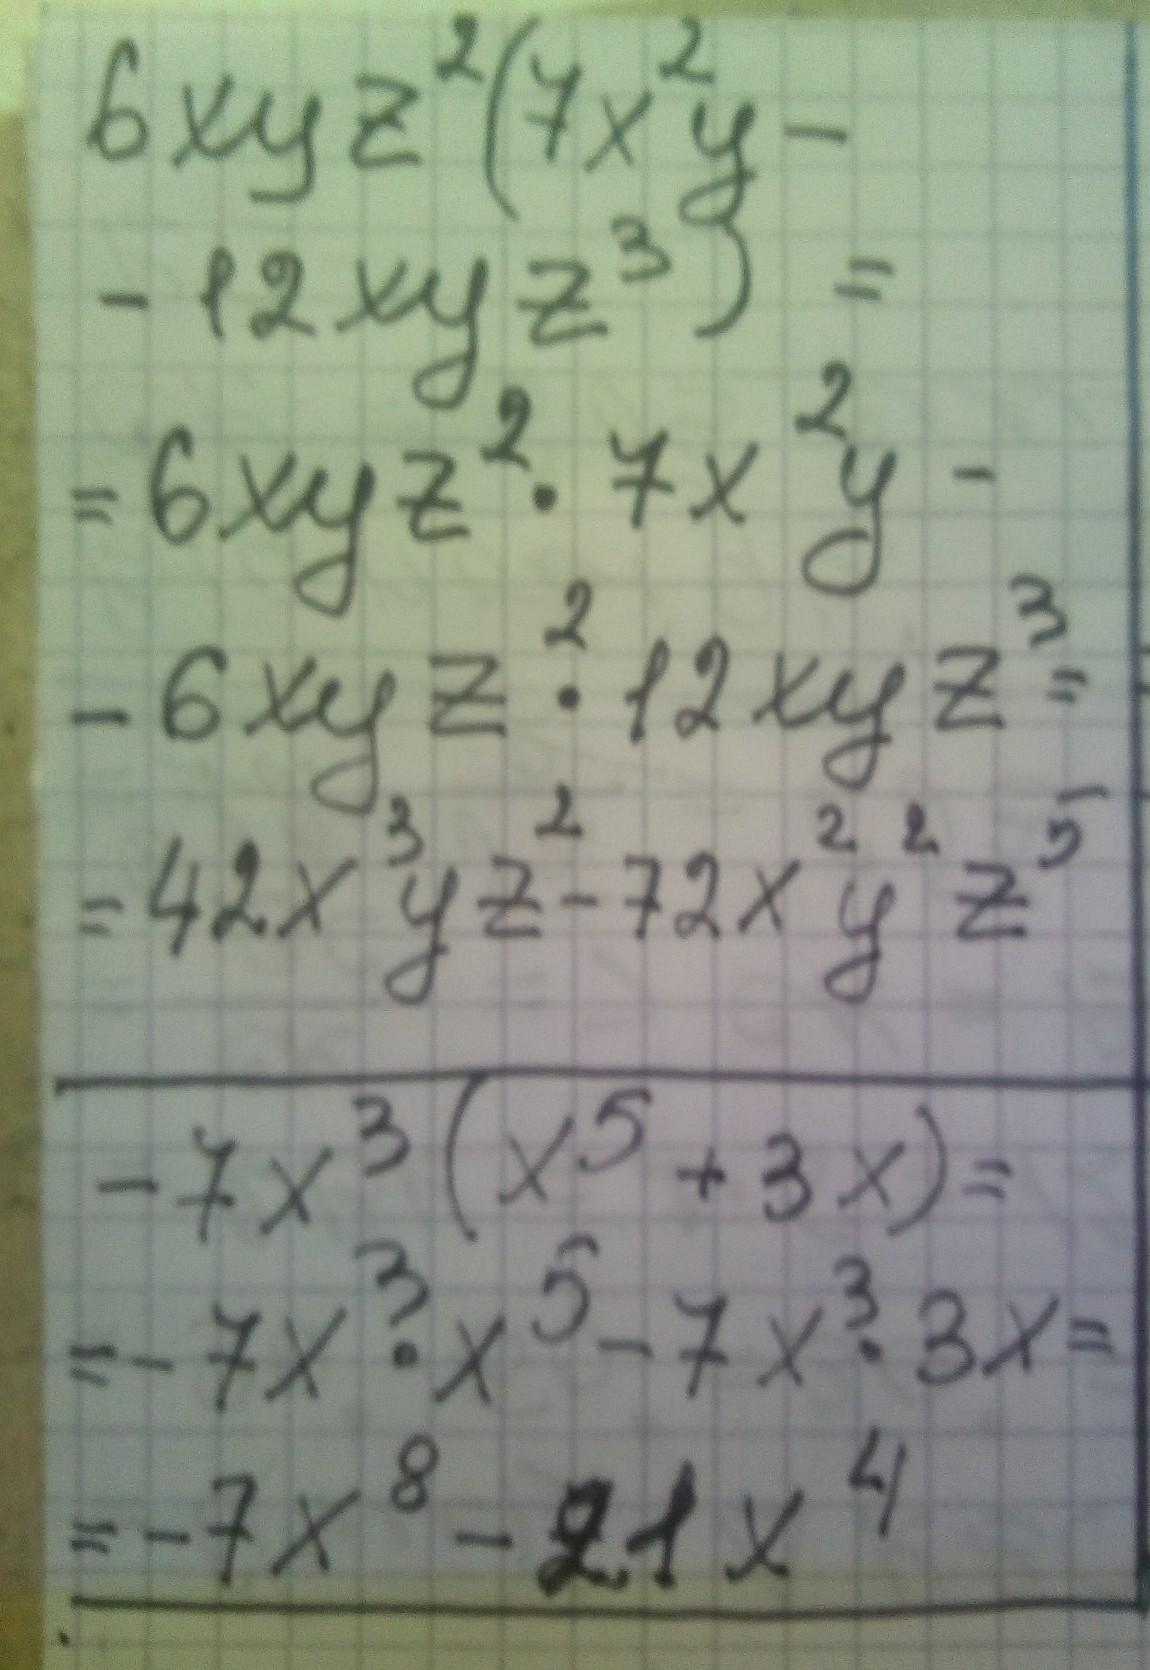 6xyz²(7x²y −
− 12xyz³) =
= 6xyz² · 7x²y −
− 6xyz² · 12xyz³ =
= 42x³yz² − 72x²y²z⁵
− 7x³(x⁵ + 3x) =
= − 7x³ · x⁵ − 7x³ · 3x =
= − 7x⁸ − 21x⁴